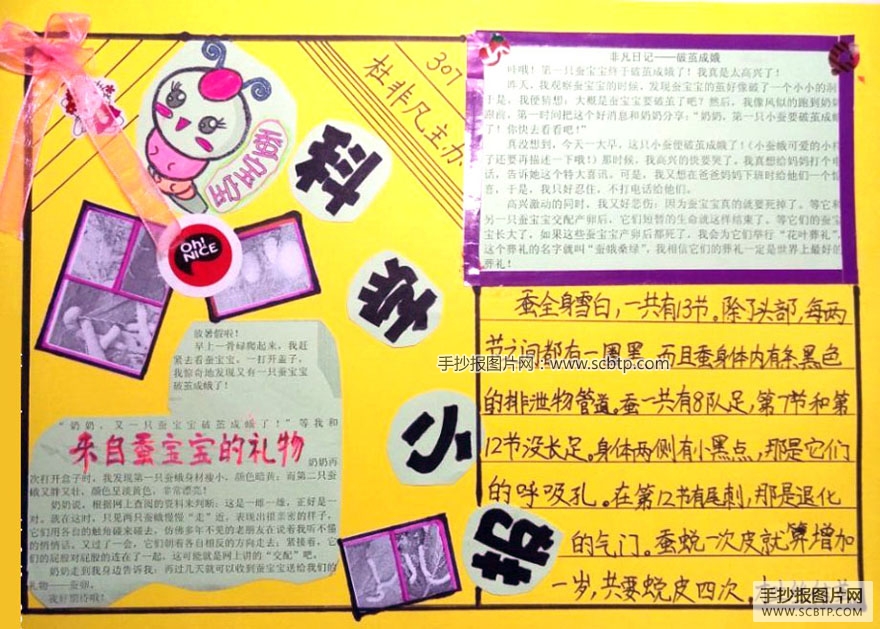 307
杜非凡主办
蚕宝宝
Oh!
NICE
我
爱
小
报
非凡日记——破茧成蛾
哇哦!第一只蚕宝宝终于破茧成蛾了!我真是太高兴了!
昨天,我观察蚕宝宝的时候,发现蚕宝宝的茧好像破了一个小小的洞
于是,我便猜想:大概是蚕宝宝要破茧了吧?然后,我像风似的跑到奶奶
跟前,第一时间把这个好消息和奶奶分享:“奶奶,第一只蚕要破茧成蛾
了!你快去看看吧!”
真没想到,今天一大早,这只小蚕便破茧成蛾了!(小蚕蛾可爱的小样
子还要再描述一下哦!)那时候,我高兴的快要哭了,我真想给妈妈打个电
话,告诉她这个特大喜讯,可是,我又想在爸爸妈妈下班时给他们一个惊
喜,于是,我只好忍住,不打电话给他们。
高兴激动的同时,我又好悲伤:因为蚕宝宝真的就要死掉了。等它和
另一只蚕宝宝交配产卵后,它们短暂的生命就这样结束了。等它们的蚕宝
宝长大了,如果这些蚕宝宝产卵后都死了,我会为它们举行“花叶葬礼”,
这个葬礼的名字就叫“蚕蛾桑绿”,我相信它们的葬礼一定是世界上最好的
葬礼!
放暑假啦!
早上一骨碌爬起来,我赶
紧去看蚕宝宝,一打开盖子,
我惊奇地发现又有一只蚕宝宝
破茧成蛾了!
“奶奶,又一只蚕宝宝破茧成蛾了!”等我和
来自蚕宝宝的礼物
奶奶再
次打开盒子时,我发现第一只蚕蛾身材瘦小,颜色暗黄;而第二只蚕
蛾又胖又壮,颜色呈淡黄色,非常漂亮!
奶奶说,根据网上查阅的资料来判断:这是一雌一雄,正好是一
对。就在这时,只见两只蚕蛾慢慢“走”近,表现出很亲密的样子,
它们用各自的触角碰来碰去,仿佛多年不见的老朋友在说着我听不懂
的悄悄话。又过了一会,它们朝着各自相反的方向走去;紧接着,它
们的屁股对屁股的连在了一起。这可能就是网上讲的“交配”吧。
奶奶走到我身边告诉我,再过几天就可以收到蚕宝宝送给我们的
礼物——蚕卵。
我好期待哦!
蚕全身雪白,一共有13节。除了头部,每两
节之间都有一圈黑,而且蚕身体内有条黑色
的排泄物管道。蚕一共有8队足,第7节和第
12节没长足。身体两侧有小黑点,那是它们
的呼吸孔。在第12节有尾刺,那是退化
的气门。蚕蜕一次皮就算增加
一岁,共要蜕皮四次。
手抄报图片网:www.scbtp.com
手抄报图片网
WWW.SCBTP.COM